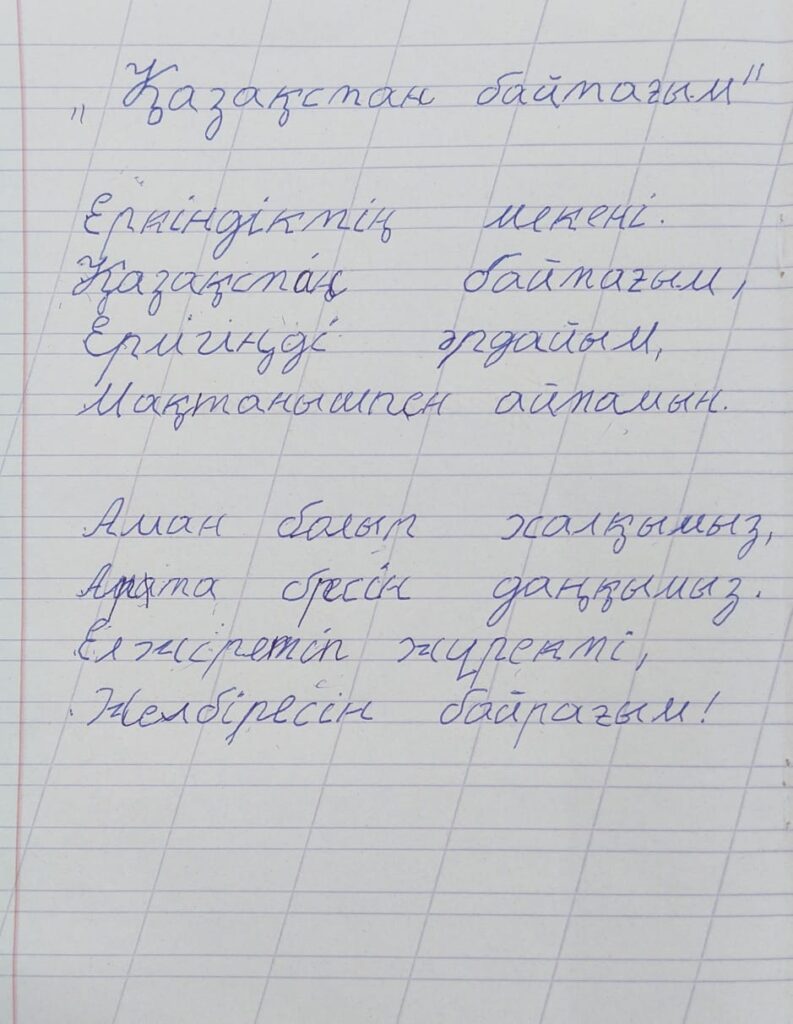 „Қазақстан байтағым"
Еркіндіктің мекені.
Қазақстаң байтағым,
Ерлігіңді әрдайым,
Мақтанышпен айтамын.
Аман болып халқымыз,
Арта бресін даңқымыз.
Елжіретіп жүректі,
Желбіресін байрағым!